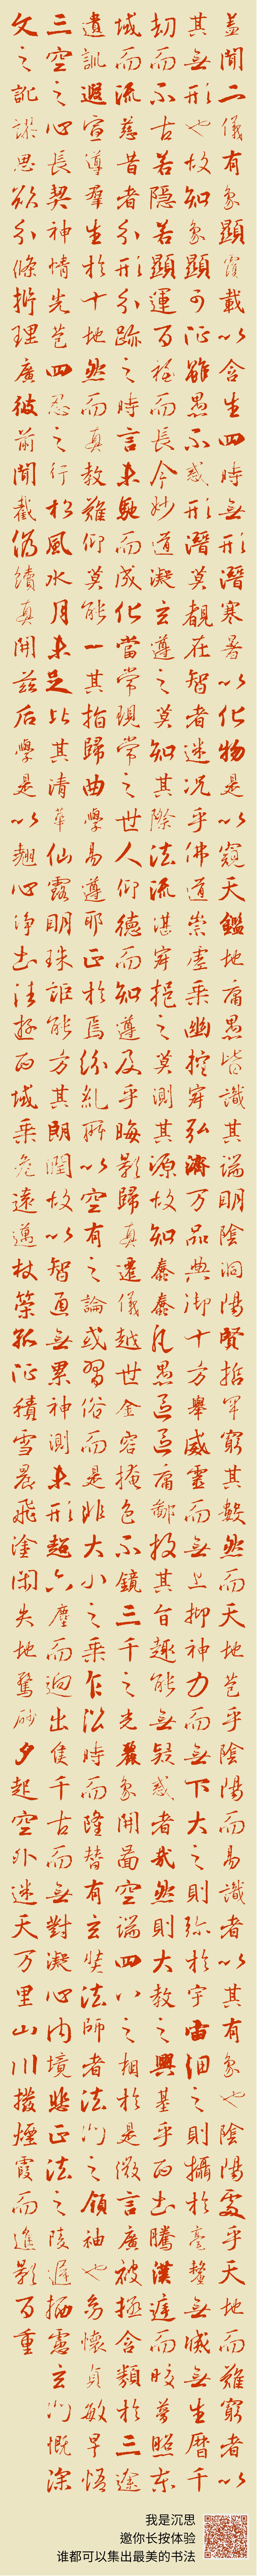 盖聞二儀有象顯覆載以含生四時無形潛寒暑以化物是以窺天鑑地庸愚皆識其端明陰洞陽賢哲罕窮其數然而天地苞乎陰陽而易識者以其有象也陰陽處乎天地而難窮者以
其無形也故知象顯可征雖愚不惑形潛莫覩在智者迷況乎佛道崇虛乘幽控寂弘濟万品典御十方舉威靈而無上抑神力而無下大之則彌於宇宙細之則攝於毫釐無滅無生曆千
劫而不古若隱若顯運百福而長今妙道凝玄遵之莫知其際法流湛寂挹之莫測其源故知蠢蠢凡愚區區庸鄙投其旨趣能無疑惑者哉然則大教之興基乎西土騰漢庭而皎夢照東
域而流慈昔者分形分跡之時言未馳而成化當常現常之世人仰德而知遵及乎晦影歸真遷儀越世金容掩色不鏡三千之光麗象開圖空端四八之相於是微言廣被拯含類於三途
遺訓遐宣導羣生於十地然而真教難仰莫能一其指歸曲學易遵耶正於焉紛糺所以空有之論或習俗而是非大小之乘乍沿時而隆替有玄奘法師者法門之領袖也幼懷貞敏早悟
三空之心長契神情先苞四忍之行松風水月未足比其清華仙露明珠詎能方其朗潤故以智通無累神測未形超六塵而迥出隻千古而無對凝心內境悲正法之陵遲栖慮玄門慨深
文之訛謬思欲分條析理廣彼前聞截偽續真開茲后學是以翹心淨土法遊西域乘危遠邁杖策孤征積雪晨飛塗閒失地驚砂夕起空外迷天万里山川撥煙霞而進影百重
我是沉思
邀你长按体验
谁都可以集出最美的书法